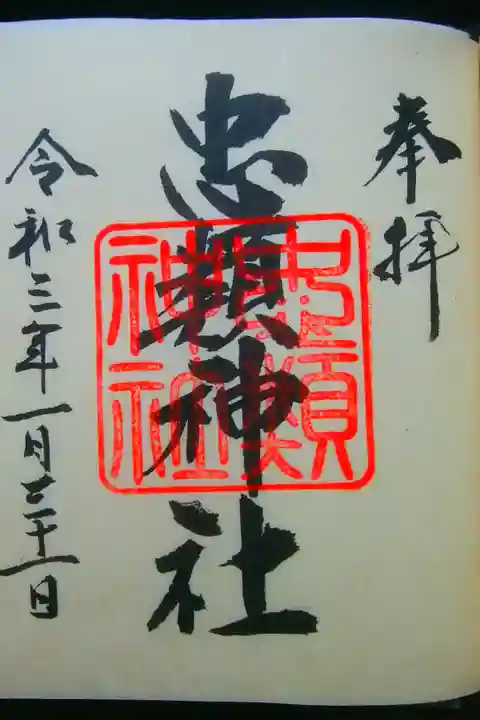 奉拝
忠頼神社
令和三年一月三十一日
忠頼
神社